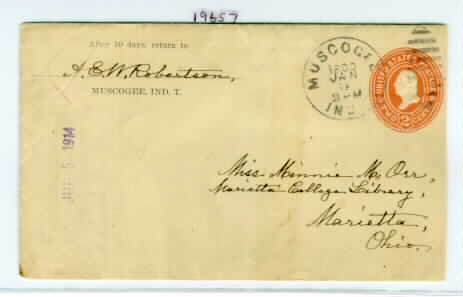 19657
After 10 days, return to
A. E. W. Robertson,
MUSCOGEE, IND. T.
MUSCOGEE
JAN
IND
UNITED STATES
2
JUL 5 1914
Miss Minnie M. Orr,
Marietta College Library,
Marietta,
Ohio.